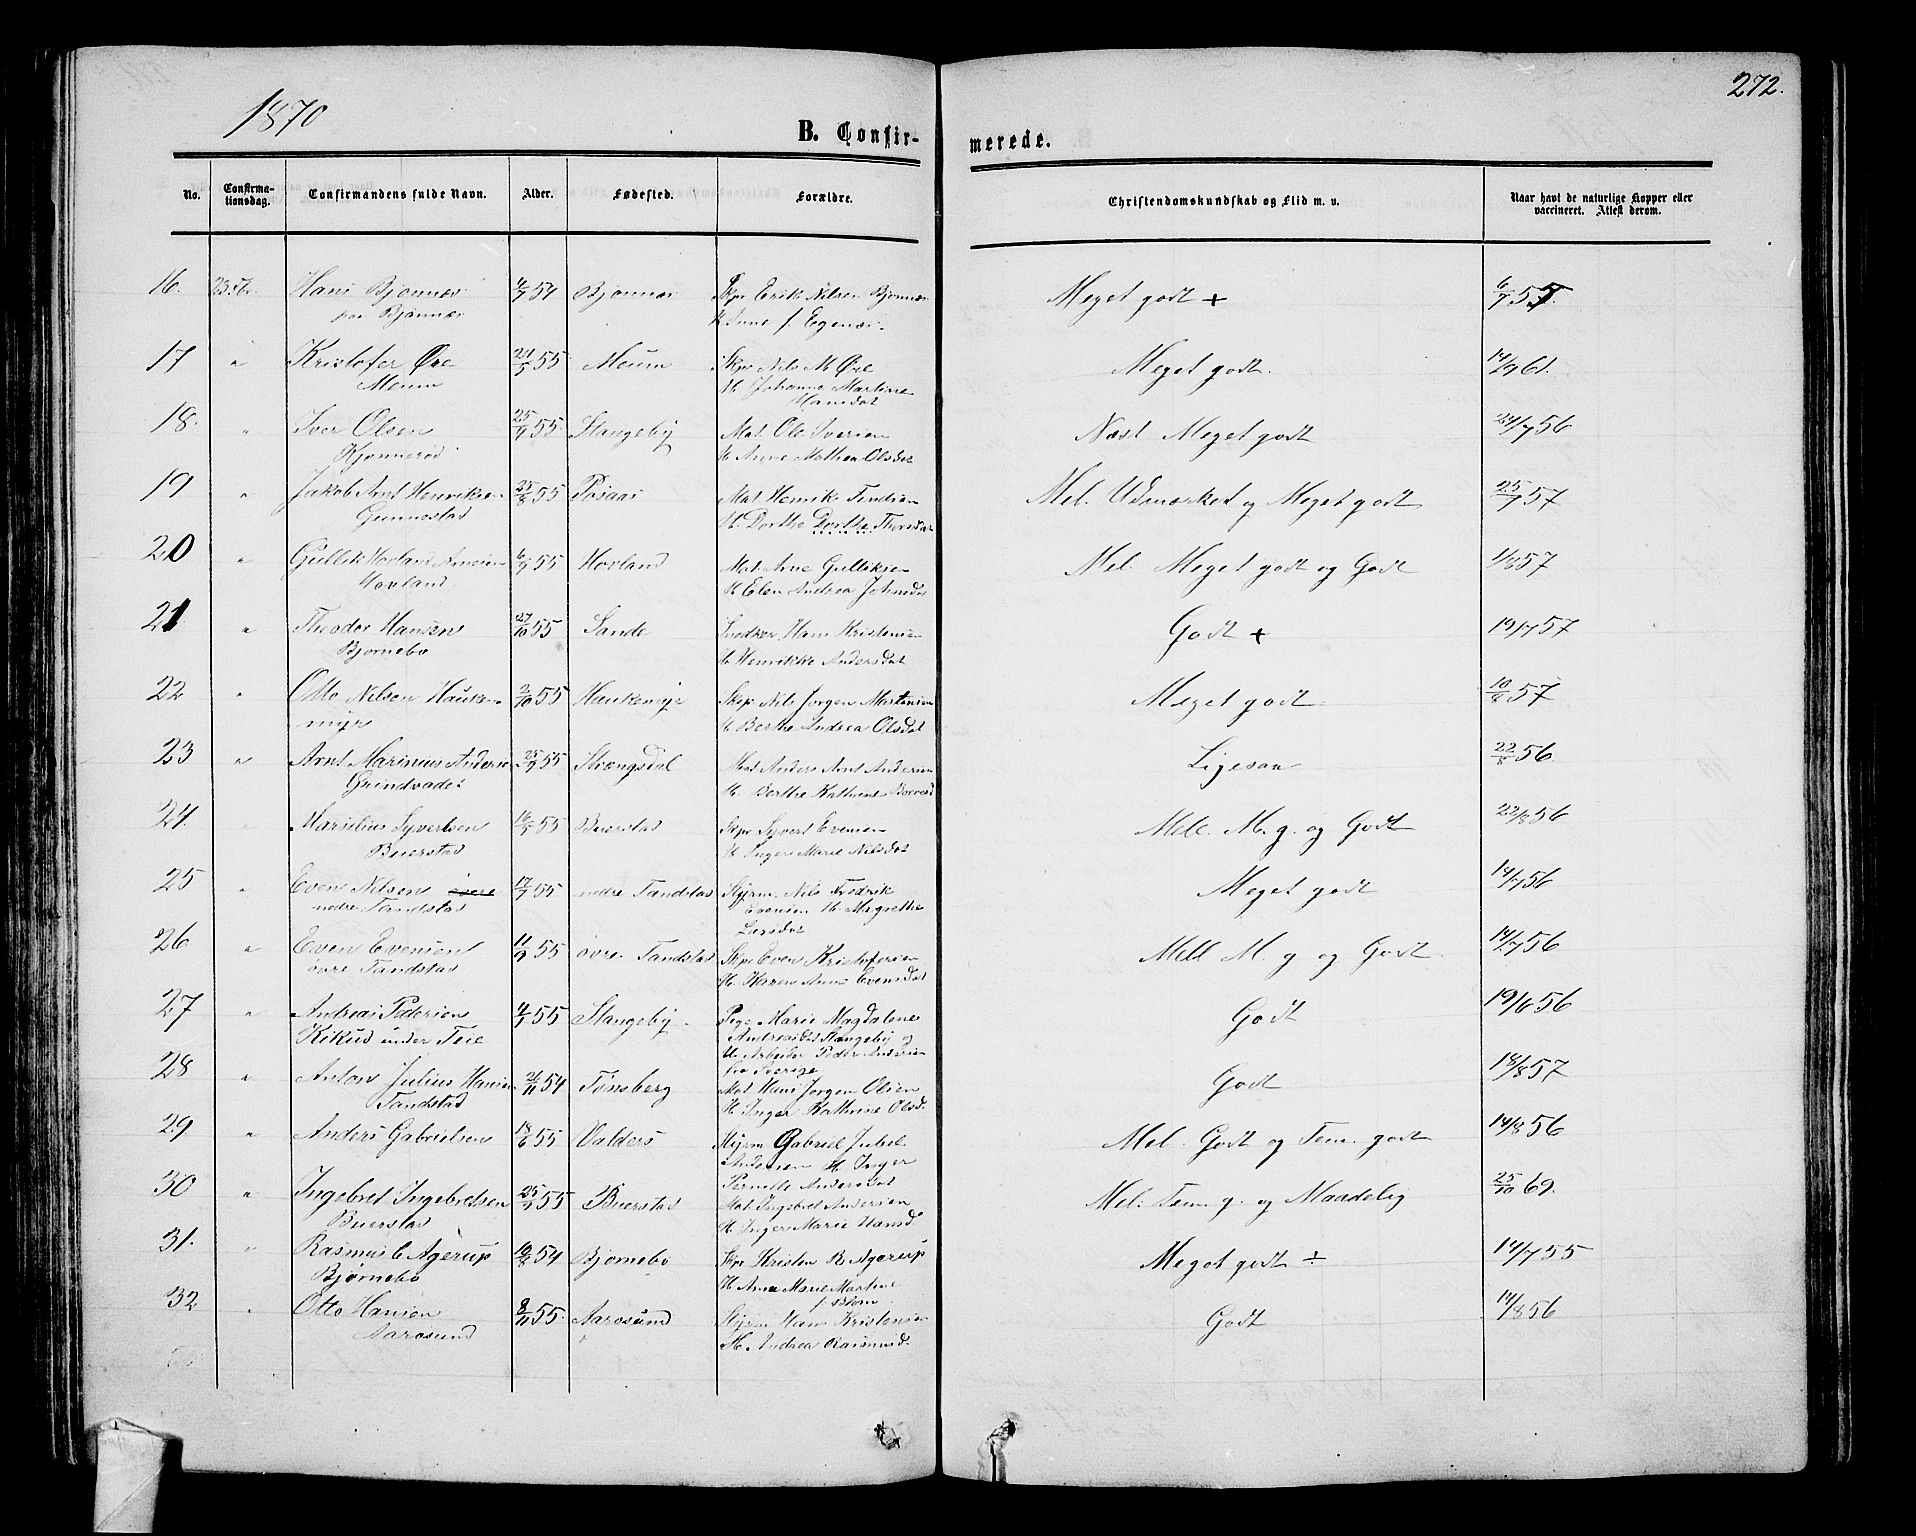 1870
272.
B. Confir-
merede.
No.
Confirma-
tionsdag.
Confirmandens fulde Navn.
Alder.
Fødested.
Forældre.
Christendomskundskab og Flid m. v.
Naar havt de naturlige Kopper eller
vaccineret. Attest derom.
16. Hans Bjønnæs 4/7 54 Bjønnæs Skpr Erik Nilsen Bjønnæs Meget godt +
Bjønnæs
17 " Kristofer Øre 24/5 55 Meum Skpr Nils M Øre Meget godt. 14/9 61.
Meum H. Johanne Martine
18. " Iver Olsen 55 Stangeby Mat. Ole Iversen Næst Meget godt 24/7 56
H. Anne Mathea Olsdat
19 " Jakob Arnt Henriksen 25/8 55 Mat Henrik Mel. Udmærket og Meget godt 25/7 57
Gunnestad H. Dorthe Dorthe Thorsdat
20 " Gullik Hovland Arnesen 55 Hovland Mat. Arne Gulliksen Mel. Meget godt og Godt 1/8 57
Hovland H Elen Andrea Johnsdat
21 " Theodor Hansen 27/10 55 Sande Snedker Hans Kristensen Godt + 19/7 57
Bjørnebo H Henrikke Andersdat
22 " Otto Nilsen Hauke- 2/10 55 Haukemyr Skpr Nils Jørgen Martensen Meget godt 57
myr H Berthe Andrea Olsdat
23 " Arnt Marinius Anderse 55 Mat Anders Arnt Andersen Ligesaa 22/8 56
H. Berthe Kathrine
24. Marselius Syvertsen 16/5 55 Buerstad Skpr Syvert Evensen Mell. M. g. og Godt 22/8 56
Buerstad H Inger Marie Nilsdat
25 " Even Nilsen øvre 17/7 55 nedre Tandstad Styrm. Nils Fredrik Meget godt 14/7 56
nedre Tandstad Evensen H. Magrethe
Larsdat
26 " Even Evensen 11/9 55 øvre Tandstad Skpr Even Kristofersen Mell M. g og Godt 14/7 56
øvre Tandstad H. Karen Anne Evensdat
27 " Andreas Pedersen 55 Stangeby Pige Marie Magdalene Godt 19/6 56
Kikud under Teie Andreasdat Stangeby og
U. Arbeider Peder Andersen
fra Sverige
28 " Anton Julius Hansen 26/11 54 Tønsberg Mat Hans Jørgen Olsen Godt 18/8 57
Tandstad H. Inger Kathrine Olsd.
29 " Anders Gabrielsen 18/6 55 Valders Styrm Gabriel Juhel Mel. Godt og Tem. godt 14/8 56
Andersen H. Inger
Pernelle Andersdat
30 " Ingebret Ingebretsen 55 Buerstad Mat Ingebret Andersen Mel. Tem g. og Maadelig 25/10 69.
Buerstad H. Inger Marie Hansd
31. " Rasmus C Agerup 10/8 54 Bjørnebo Skpr Kristen R Agerup Meget godt ÷ 14/7 55
Bjørnebo H Anne Marie Martine
f. Blom
32 " Otto Hansen 8/11 55. Aarosund Styrm Hans Kristensen Godt 14/8 56
Aarosund H. Andrea Rasmusd.